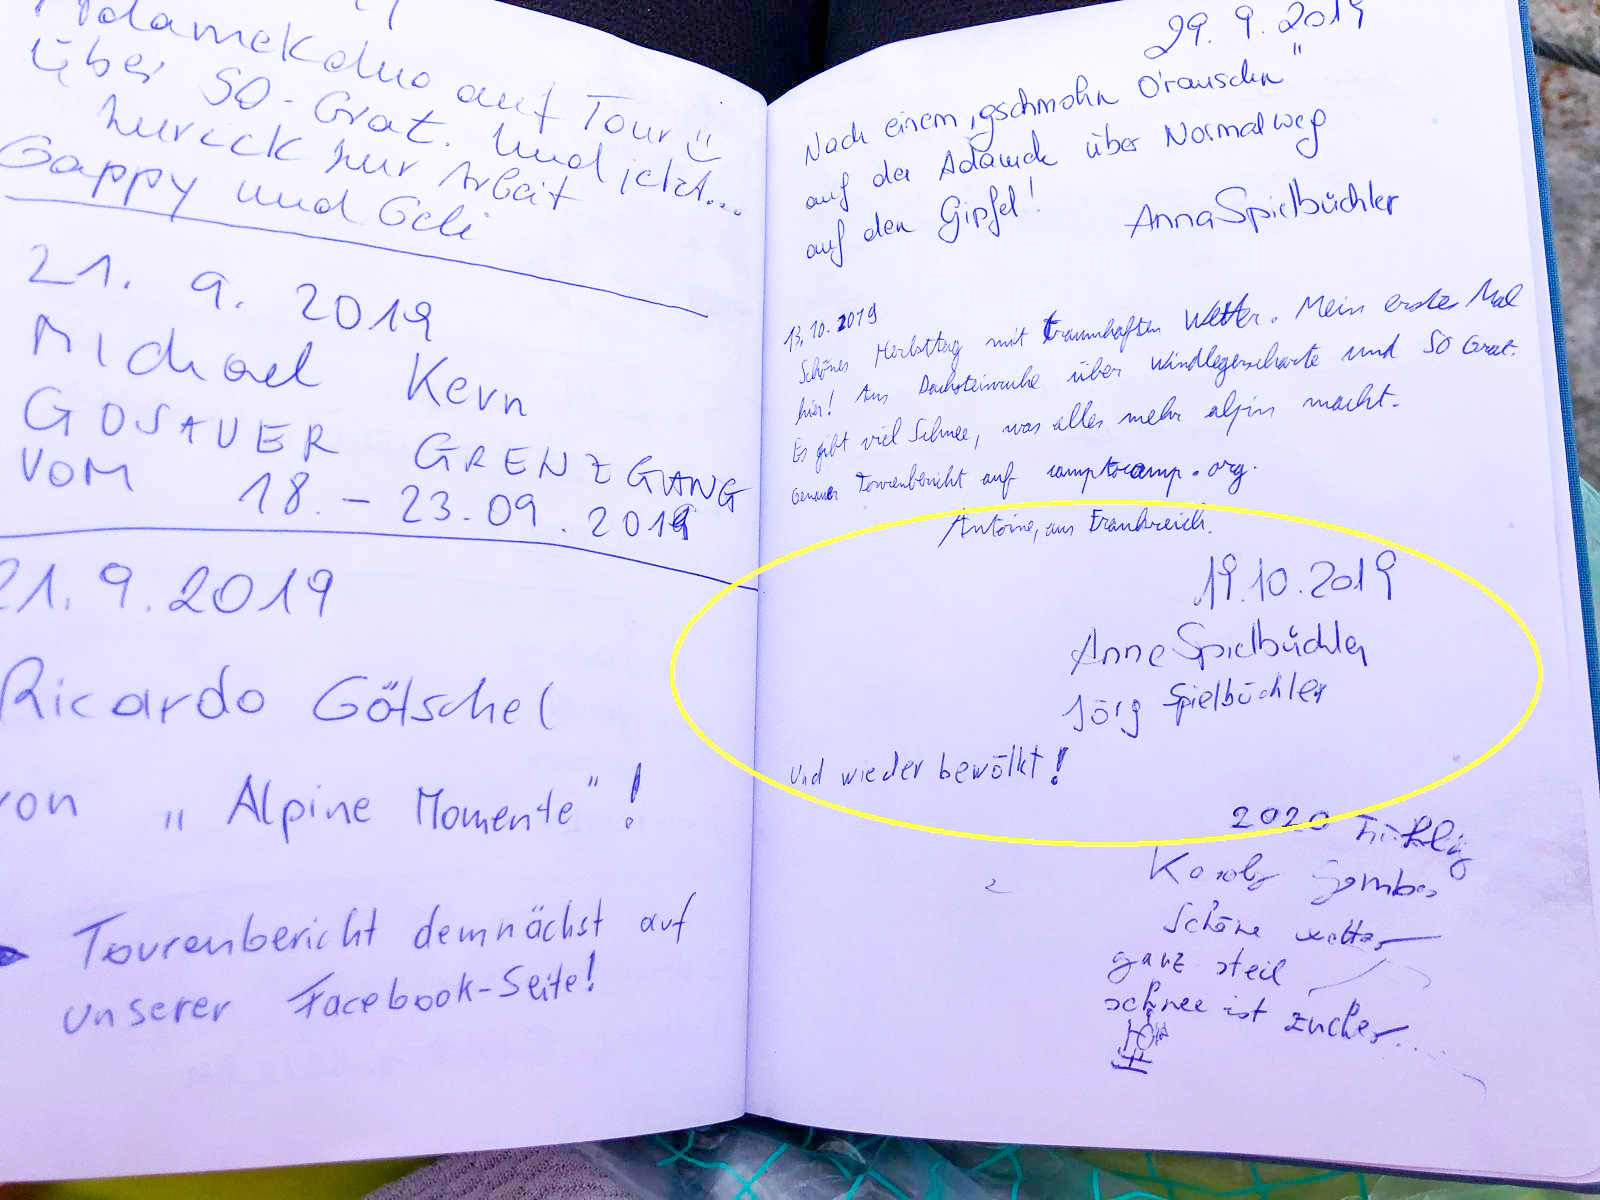 Adamekduo auf Tour
über SO-Grat. Und jetzt...
zurück zur Arbeit
Gappy und Geli
21. 9. 2019
Michael Kern
GOSAUER GRENZGANG
VOM 18. – 23.09.2019
21.9.2019
Ricardo Götschel
von „Alpine Momente"!
Tourenbericht demnächst auf
unserer Facebook-Seite!
29. 9. 2019
Nach einem „gschmohn O'rauschn"
auf der Adamek über Normalweg
auf den Gipfel!
Anna Spielbüchler
13.10.2019
Schönes Herbsttag mit traumhaften Wetter. Mein erstes Mal
hier! Aus über Windlegerscharte und SO Grat.
Es gibt viel Schnee, was alles mehr alpin macht.
Genauer Tourenbericht auf camptocamp.org.
Antoine, aus Frankreich.
19.10.2019
Anne Spielbüchler
Jörg Spielbüchler
Und wieder bewölkt!
2020
Schöne wetter
ganz steil
schnee ist zucker...